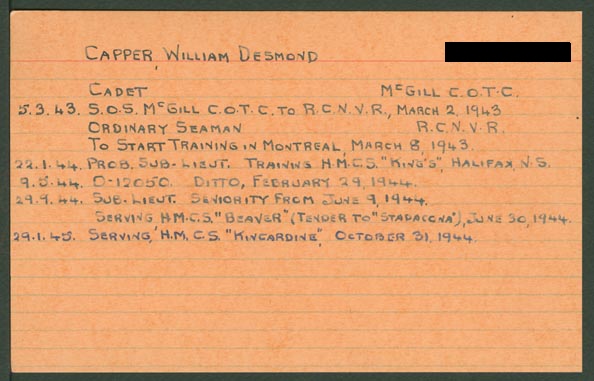 CAPPER, WILLIAM DESMOND
CADET McGILL C.O.T.C.
5.3.43. S.O.S. McGILL C.O.T.C. TO R.C.N.V.R., MARCH 2, 1943
ORDINARY SEAMAN R.C.N.V.R.
TO START TRAINING IN MONTREAL, MARCH 8, 1943.
22.1.44. PROB. SUB-LIEUT. TRAINING H.M.C.S. "KING'S", HALIFAX, N.S.
9.5.44. O-12050. DITTO, FEBRUARY 29, 1944.
29.9.44. SUB-LIEUT. SENIORITY FROM JUNE 9, 1944.
SERVING H.M.C.S. "BEAVER" (TENDER TO "STADACONA"), JUNE 30, 1944.
29.1.45. SERVING, H.M.C.S. "KINCARDINE", OCTOBER 31, 1944.